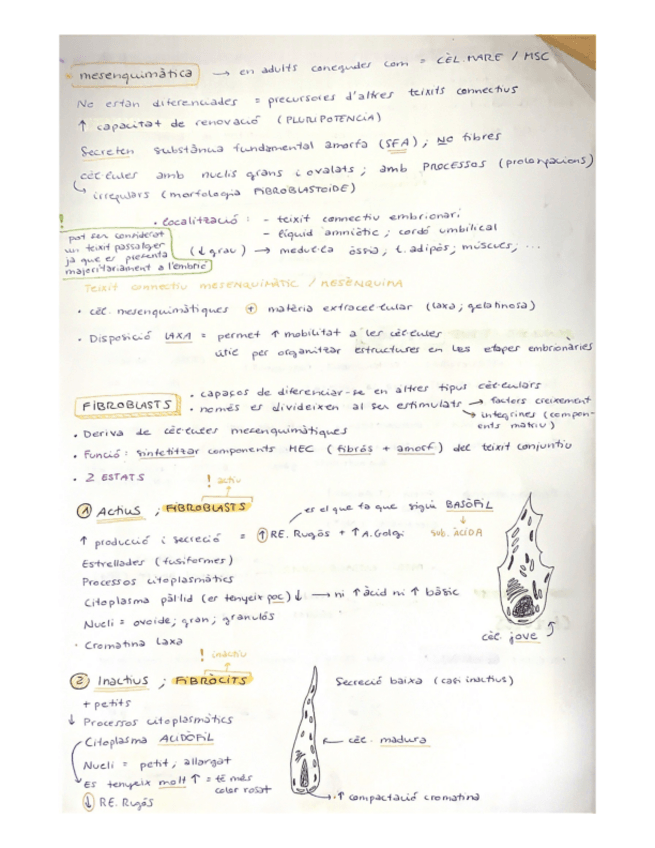 mesenquimàtica → en adults conegudes com = CÈL. MARE / MSC
No estan diferenciades = precursores d'altres teixits connectius
↑ capacitat de renovació (PLURIPOTÈNCIA)
Secreten substància fonamental amorfa (SFA); NO fibres
cèl·lules amb nuclis grans i ovalats; amb PROCESSOS (prolongacions)
↳ irregulars (morfologia FIBROBLASTOIDE)
• localització: - teixit connectiu embrionari
- líquid amniòtic; cordó umbilical
(↓ grau) → medul·la òssia; t. adipós; múscles; ...
!
pot ser considerat
un teixit passatger
ja que es presenta
majoritàriament a l'embrió
Teixit connectiu MESENQUIMÀTIC / MESÈNQUIMA
• cèl. mesenquimàtiques + matèria extracel·lular (laxa; gelatinosa)
• Disposició LAXA = permet ↑ mobilitat a les cèl·lules
útil per organitzar estructures en les etapes embrionàries
FIBROBLASTS
• capaços de diferenciar-se en altres tipus cel·lulars
• només es divideixen al ser estimulats → factors creixement
↘ integrines (compon-
ents matriu)
• Deriva de cèl·lules mesenquimàtiques
• Funció: sintetitzar components MEC (fibrós + amorf) del teixit conjuntiu
• 2 ESTATS
! actiu
① Actius; FIBROBLASTS
es el que fa que sigui BASÒFIL
↓
sub. ÀCIDA
↑ producció i secreció = ↑ RE. Rugós + ↑ A. Golgi
Estrellades (fusiformes)
Processos citoplasmàtics
Citoplasma pàl·lid (es tenyeix poc) ↓ → ni ↑ àcid ni ↑ bàsic
Nucli = ovoide; gran; granulós
• Cromatina laxa
cèl. jove
! inactiu
② Inactius; FIBRÒCITS
Secreció baixa (casi inactius)
+ petits
↓ Processos citoplasmàtics
Citoplasma ACIDÒFIL
← cèl. madura
Nucli = petit; allargat
Es tenyeix molt ↑ = té més
color rosat
↓ RE. Rugós
→ ↑ compactació cromatina